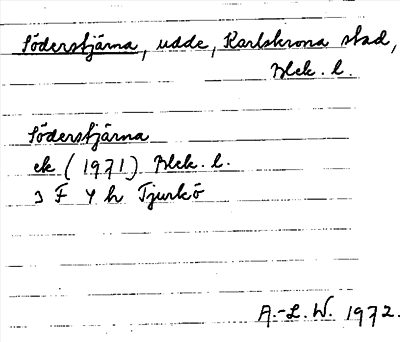 Söderstjärna, udde, Karlskrona stad,
Blek. l.
Söderstjärna
ek (1971) Blek. l.
3 F 4 h Tjurkö
A.-L. W. 1972.